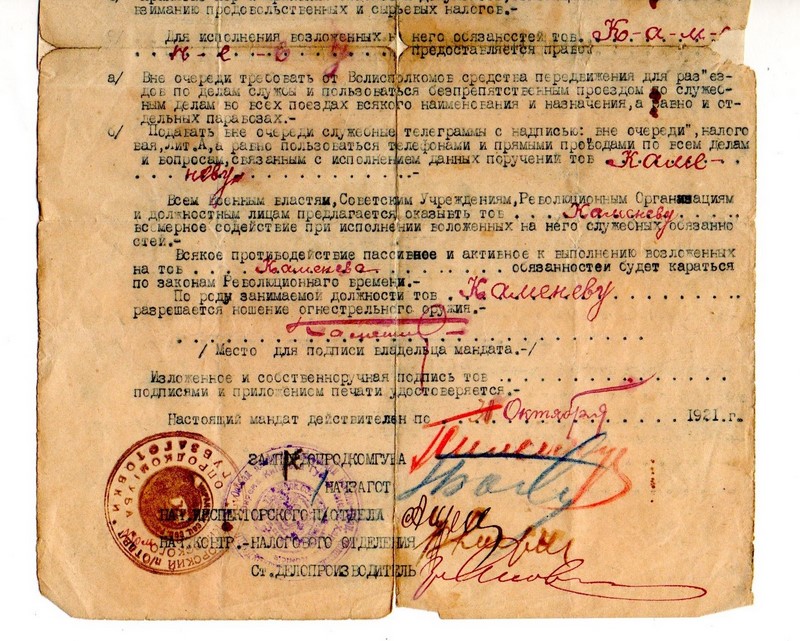 взиманию продовольственных и сырьевых налогов.-
Для исполнения возложенных на него обязанностей тов. К-а-м-
н-е-в у . . . . . . . . . предоставляется право:
а/ Вне очереди требовать от Волисполкомов средства передвижения для раз"ез-
дов по делам службы и пользоваться безпрепятственным проездом по служеб-
ным делам во всех поездах всякого наименования и назначения,а равно и от-
дельных паравозах.-
б/ Подавать вне очереди служебные телеграммы с надписью: вне очереди",налого
вая,Лит.А,а равно пользоваться телефонами и прямыми проводами по всем делам
и вопросам,связанным с исполнением данных поручений тов Каме-
неву. . . . . . . . . .-
Всем Военным властям,Советским Учреждениям,Революционным Организациям
и должностным лицам предлагается оказывть тов . . . . Каменеву . . . . .
всемерное содействие при исполнении воложенных на него служебных обязанно
стей.-
Всякое противодействие пассивное и активное к выполнению возложенных
на тов . . . . . Каменева . . . . . . . . . обязанностей будет караться
по законам Революционнаго времени.-
По роду занимаемой должности тов . Каменеву . . . . . . . .
разрешается ношение огнестрельного оружия.-
/ Место для подписи владельца мандата.-/
Изложенное и собственноручная подпись тов . . . . . . . . . .
подписями и приложением печати удостоверяется.-
Настоящий мандат действителен по . . . Октября . . . . 1921.г.
ЗАМГУБПРОДКОМГУБА
НАЧЗАГОТ
НАЧ.ИНСПЕКТОРСКОГО П/ОТДЕЛА
НАЧ.КОНТР.-НАЛОГОВОГО ОТДЕЛЕНИЯ
Ст.ДЕЛОПРОИЗВОДИТЕЛЬ